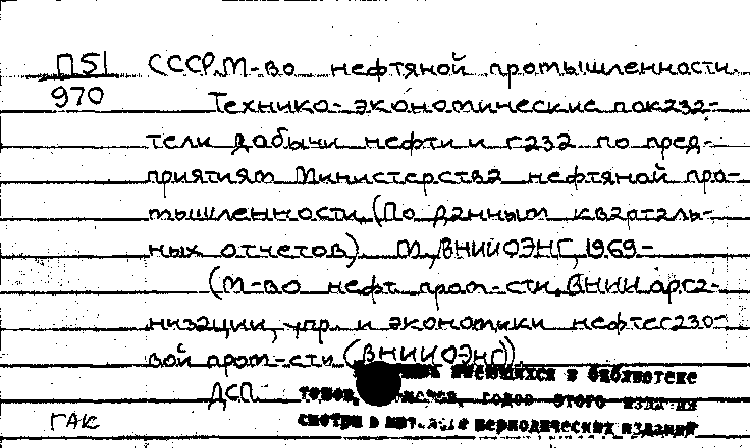 П51 СССР. М-во нефтяной промышленности.
970 Технико-экономические показа-
тели добычи нефти и газа по пред-
приятиям Министерства нефтяной про-
мышленности. (По данным кварталь-
ных отчетов). М., ВНИИОЭНГ, 1969-
(М-во нефт. пром-сти. ВНИИ орга-
низации, упр. и экономики нефтегазо-
вой пром-сти (ВНИИОЭнг)).
имеющихся в библиотеке
ДСП. томов, годов этого издания
ГАК смотри в периодических изданий